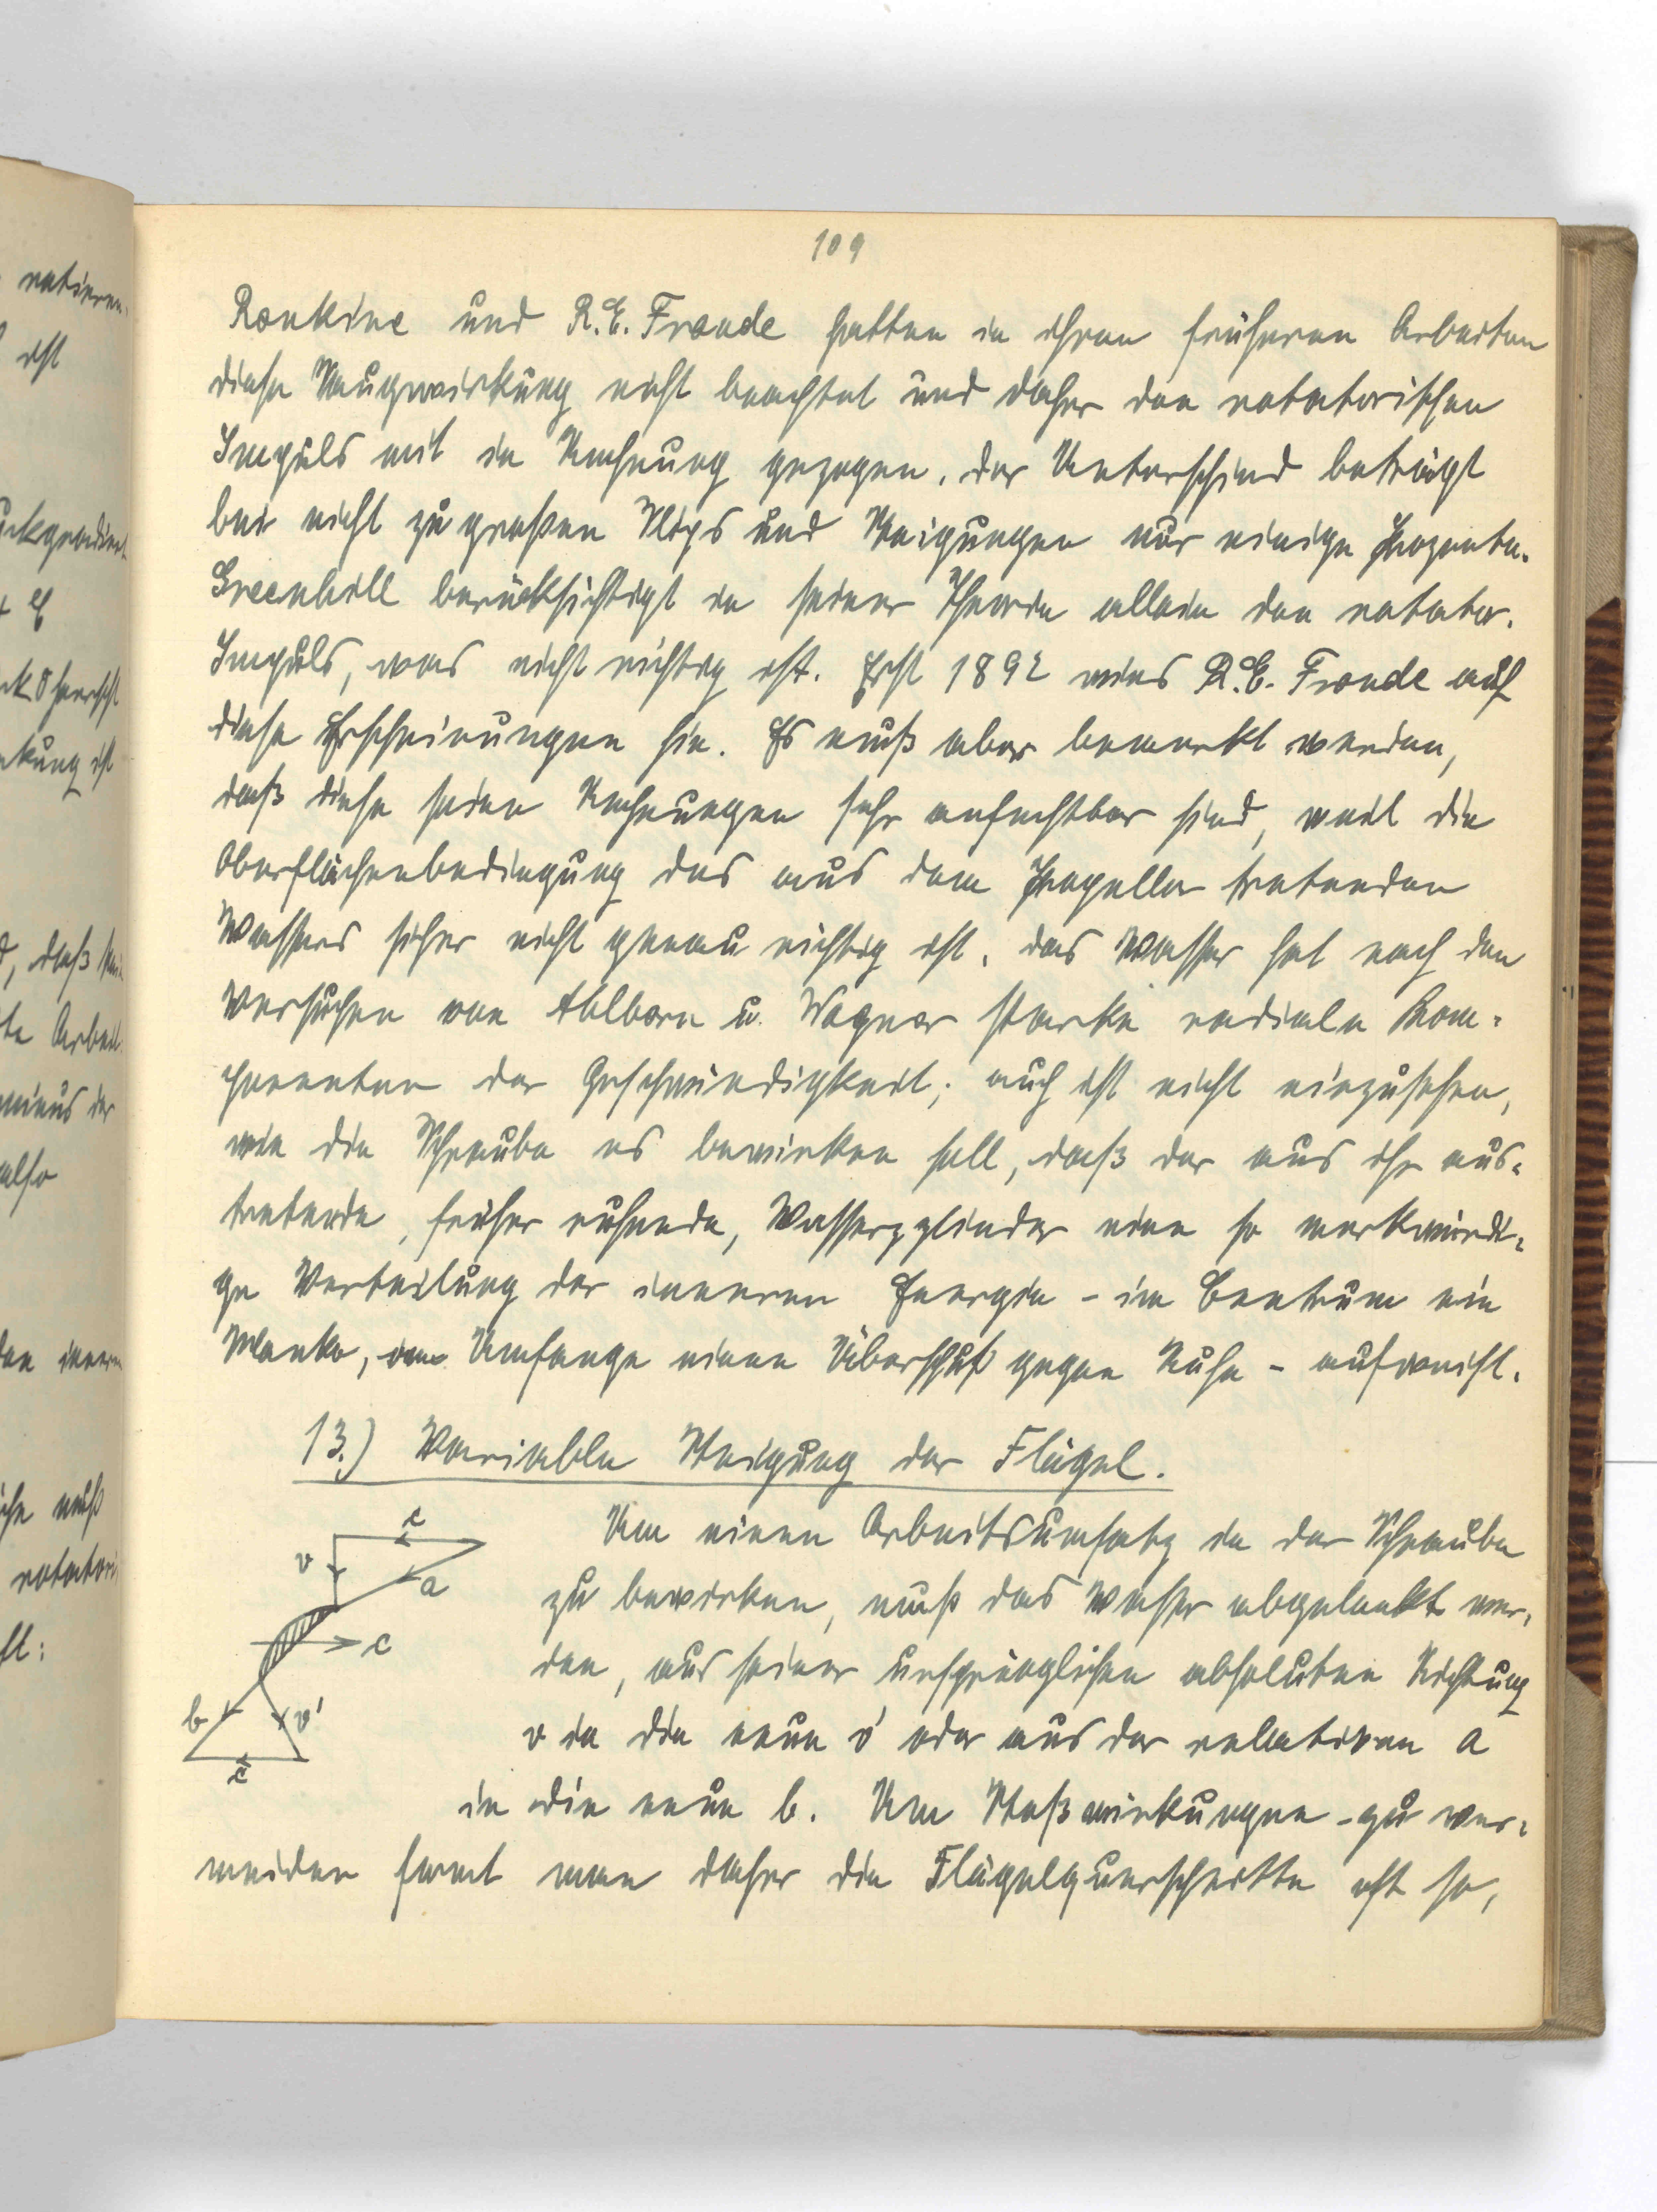 109
Rankine und R. E. Fronde hatten in ihren früheren Arbeiten
diese Saugwirkung nicht beachtet und daher den rotatorischen
Impuls mit in Rechnung gezogen. Der Unterschied beträgt
bei nicht zu großen Slips und Steigungen nur einige Prozente.
Greenhill berücksichtigt in seiner Theorie allein den rotator.
Impuls, was nicht richtig ist. Erst 1892 wies R. E. Fronde auf
diese Erscheinungen hin. Es muß aber bemerkt werden,
daß diese seine Rechnungen sehr anfechtbar sind, weil die
Oberflächenbedingung des aus dem Propeller tretenden
Wassers sicher nicht genau richtig ist. Das Wasser hat nach den
Versuchen von Ahlborn u. Wagner starke radiale Kom-
ponenten der Geschwindigkeit; auch ist nicht einzusehen,
wie die Schraube es bewirken soll, daß der aus ihr aus-
tretende, früher ruhende, Wasserzylinder eine so merkwürdi-
ge Verteilung der inneren Energie - im Centrum ein
Manko, am Umfange einen Überschuß gegen Ruhe - aufweist.
13.) Variable Steigung der Flügel.
c
v
a
c
b
v'
c
Um einen Arbeitsumsatz in der Schraube
zu bewirken, muß das Wasser abgelenkt wer-
den, aus seiner ursprünglichen absoluten Richtung
v in die neue v' oder aus der relativen a
in die neue b. Um Stoßwirkungen zu ver-
meiden formt man daher die Flügelquerschnitte oft so,
rotieren-
ist
uckgradient
+ E
ck 0 herrscht
rkung ist
, daß
te Arbeit
minus der
also
den inneren
che muß
rotatori